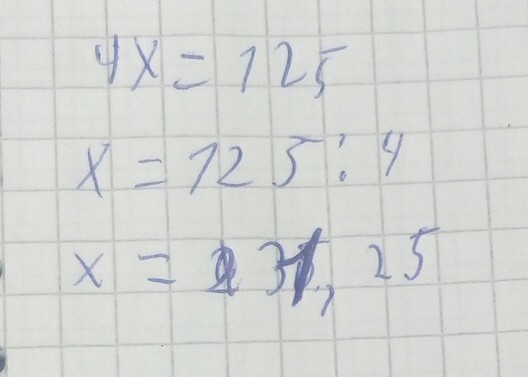 4x = 125
x = 125 : 4
x = 31,25